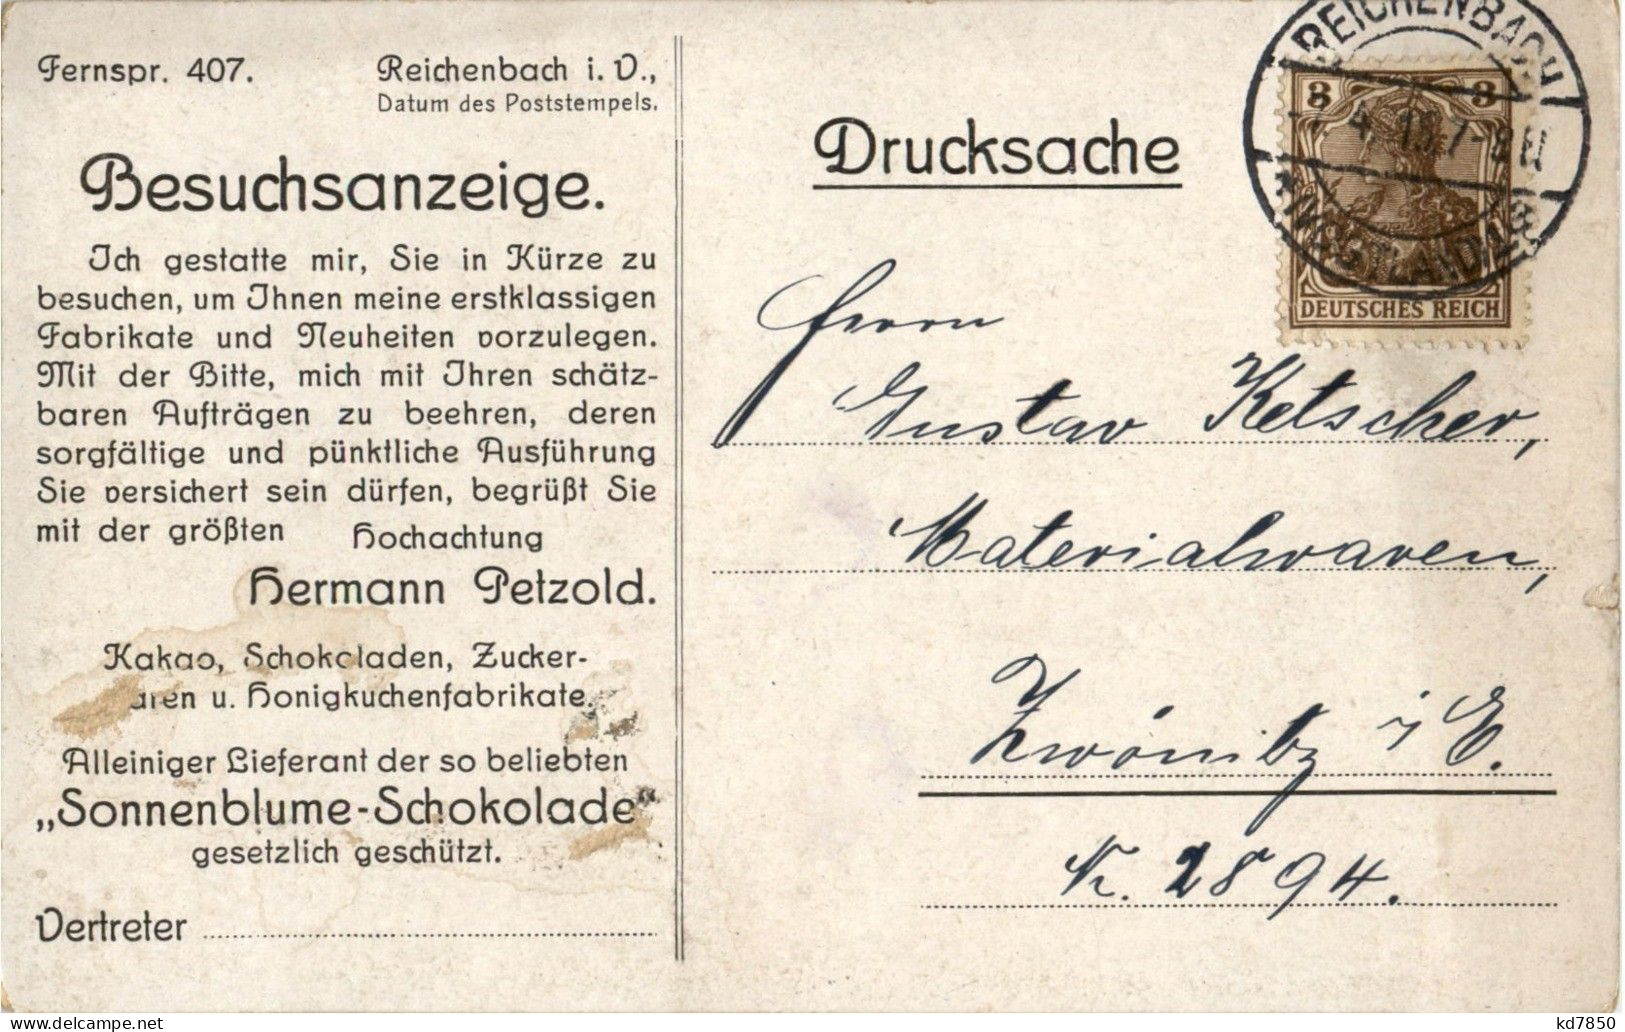 Fernspr. 407.
Reichenbach i. V.,
Datum des Poststempels.
Besuchsanzeige.
Ich gestatte mir, Sie in Kürze zu
besuchen, um Ihnen meine erstklassigen
Fabrikate und Neuheiten vorzulegen.
Mit der Bitte, mich mit Ihren schätz-
baren Aufträgen zu beehren, deren
sorgfältige und pünktliche Ausführung
Sie versichert sein dürfen, begrüßt Sie
mit der größten Hochachtung
Hermann Petzold.
Kakao, Schokoladen, Zucker-
u. Honigkuchenfabrikate.
Alleiniger Lieferant der so beliebten
„Sonnenblume-Schokolade“
gesetzlich geschützt.
Vertreter
Drucksache
REICHENBACH
3 3
DEUTSCHES REICH
Herrn
Gustav Ketscher,
Materialwaren,
Zwönitz i E.
N. 2894.
kd7850
delcampe.net